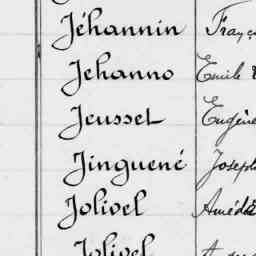 Jéhannin
Jehanno Emile
Jeusset Eugène
Jinguené Joseph
Jolivel Amédée
Jolivel